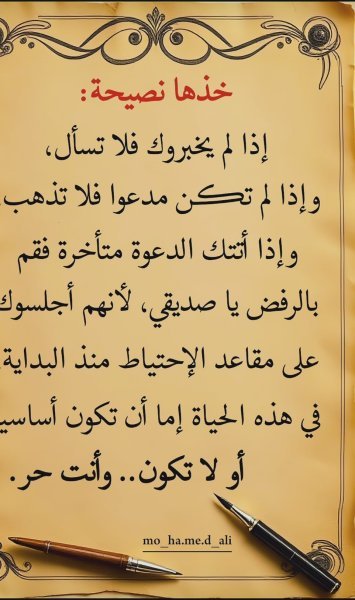 خذها نصيحة:
إذا لم يخبروك فلا تسأل،
وإذا لم تكن مدعوا فلا تذهب
وإذا أتتك الدعوة متأخرة فقم
بالرفض يا صديقي، لأنهم أجلسوك
على مقاعد الإحتياط منذ البداية
في هذه الحياة إما أن تكون أساسي
أو لا تكون.. وأنت حر.
mo_ha.me.d_ali